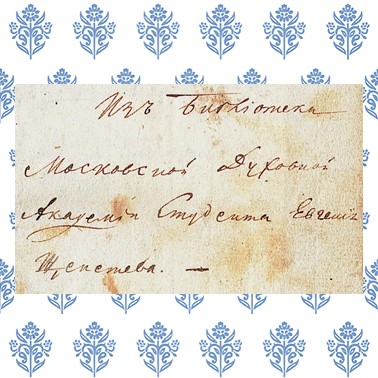 Изъ Библіотеки
Московской Духовной
Академіи Студента Евгенія
Щепетева. —